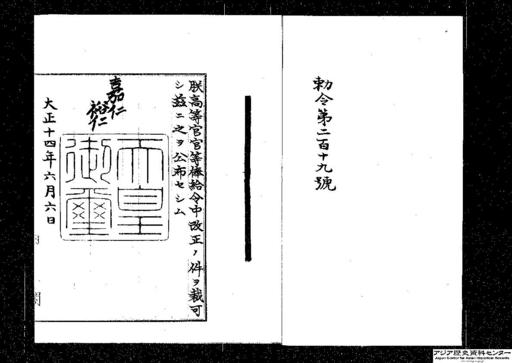 勅令第二百十九號
朕高等官官等俸給令中改正ノ件ヲ裁可
シ茲ニ之ヲ公布セシム
嘉仁
裕仁
天皇
御璽
大正十四年六月六日
アジア歴史資料センター
Japan Center for Asian Historical Records